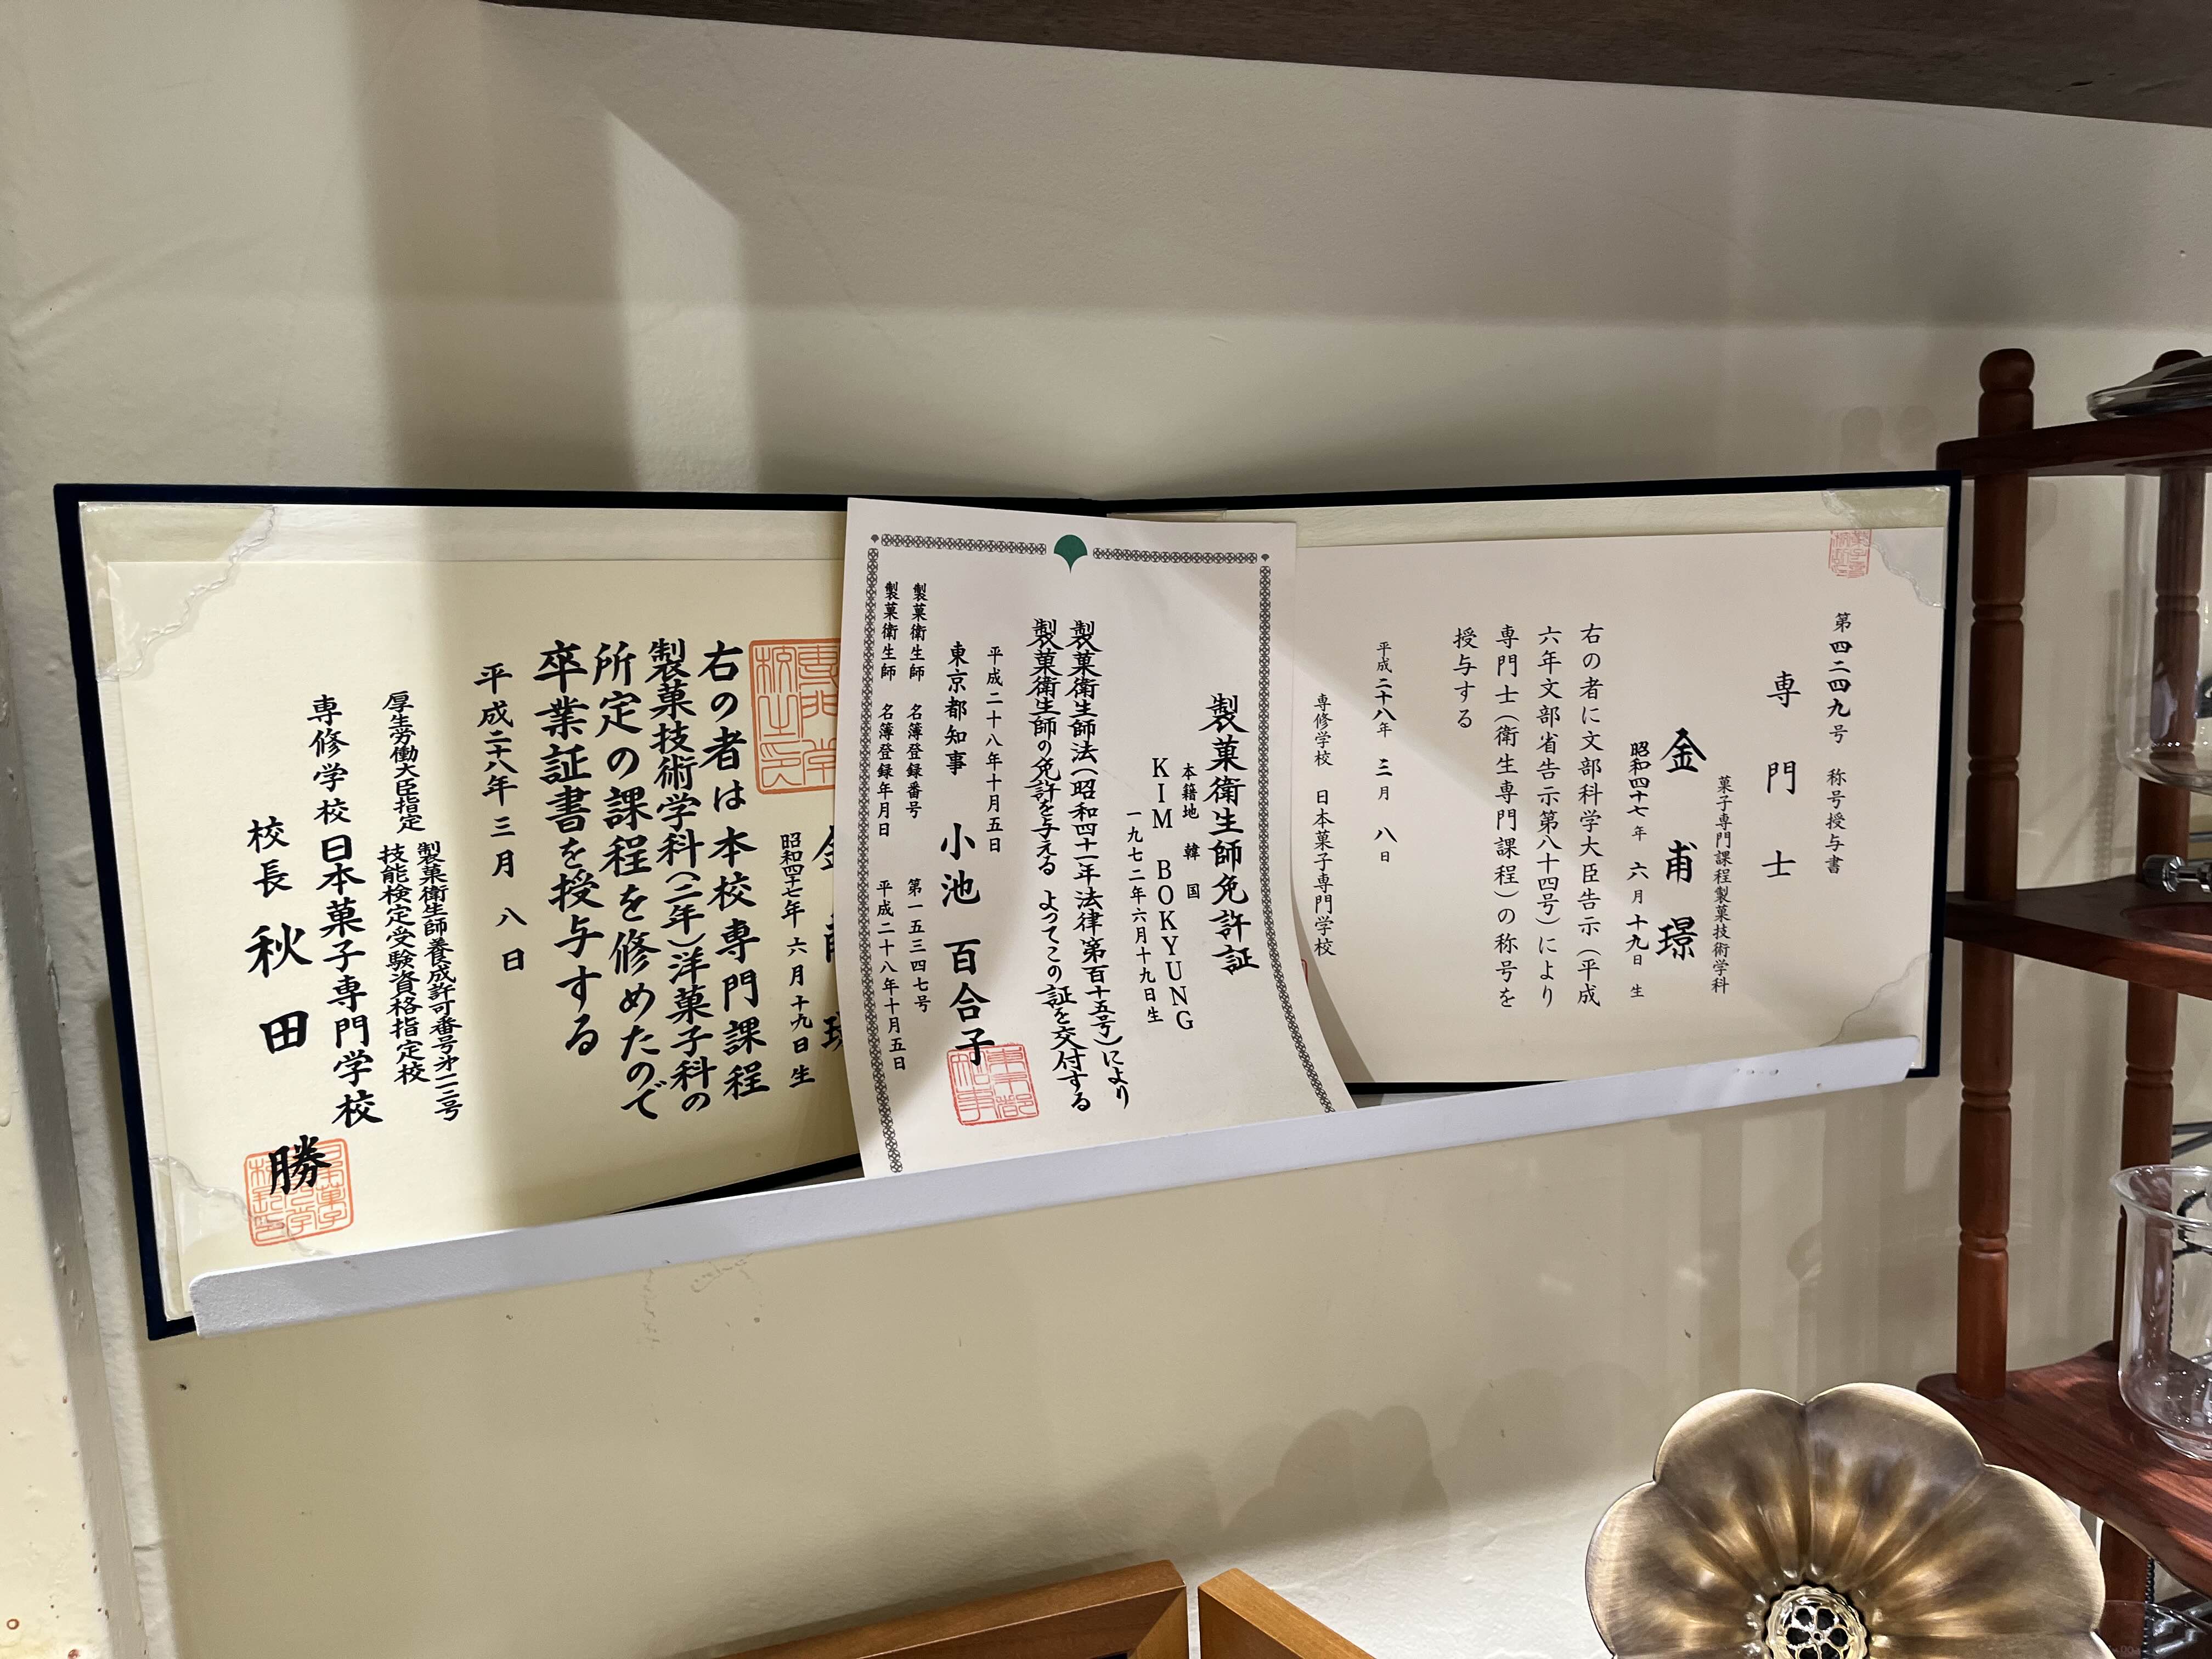 第四二四九号 称号授与書
専門士
菓子専門課程製菓技術学科
金甫璟
昭和四十七年 六月十九日 生
右の者に文部科学大臣告示(平成
六年文部省告示第八十四号)により
専門士(衛生専門課程)の称号を
授与する
平成二十八年 三月 八日
専修学校 日本菓子専門学校
製菓衛生師免許証
本籍地 韓国
KIM BOKYUNG
一九七二年六月十九日生
製菓衛生師法(昭和四十一年法律第百十五号)により
製菓衛生師の免許を与える よってこの証を交付する
平成二十八年十月五日
東京都知事 小池百合子
製菓衛生師 名簿登録番号 第一五三四七号
製菓衛生師 名簿登録年月日 平成二十八年十月五日
昭和四十七年 六月十九日生
右の者は本校専門課程
製菓技術学科(二年)洋菓子科の
所定の課程を修めたので
卒業証書を授与する
平成二十八年三月 八日
厚生労働大臣指定 製菓衛生師養成許可番号第一二号
技能検定受験資格指定校
専修学校 日本菓子専門学校
校長 秋田 勝